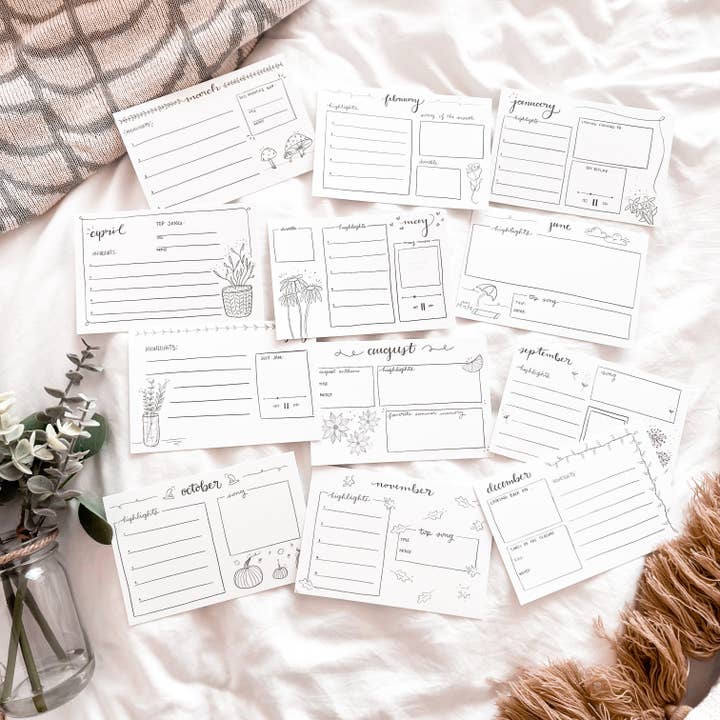 march
HIGHLIGHTS:
TITLE:
ARTIST:
february
highlights
song of the month
doodle
january
highlights
LOOKING FORWARD TO:
april
TOP SONG:
HIGHLIGHTS:
TITLE:
ARTIST:
doodle
highlights
may
june
highlights
top song
TITLE:
ARTIST:
HIGHLIGHTS:
JULY JAM:
august
august anthem
TITLE:
ARTIST:
highlights
favorite summer memory
september
highlights
song
october
highlights
song
november
highlights
top song
TITLE:
ARTIST:
december
LOOKING BACK ON:
HIGHLIGHTS:
SONG OF THE SEASON:
TITLE:
ARTIST: